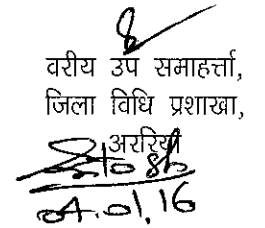 वरीय उप समाहर्त्ता,
जिला विधि प्रशाखा,
अररिया
04.01.16